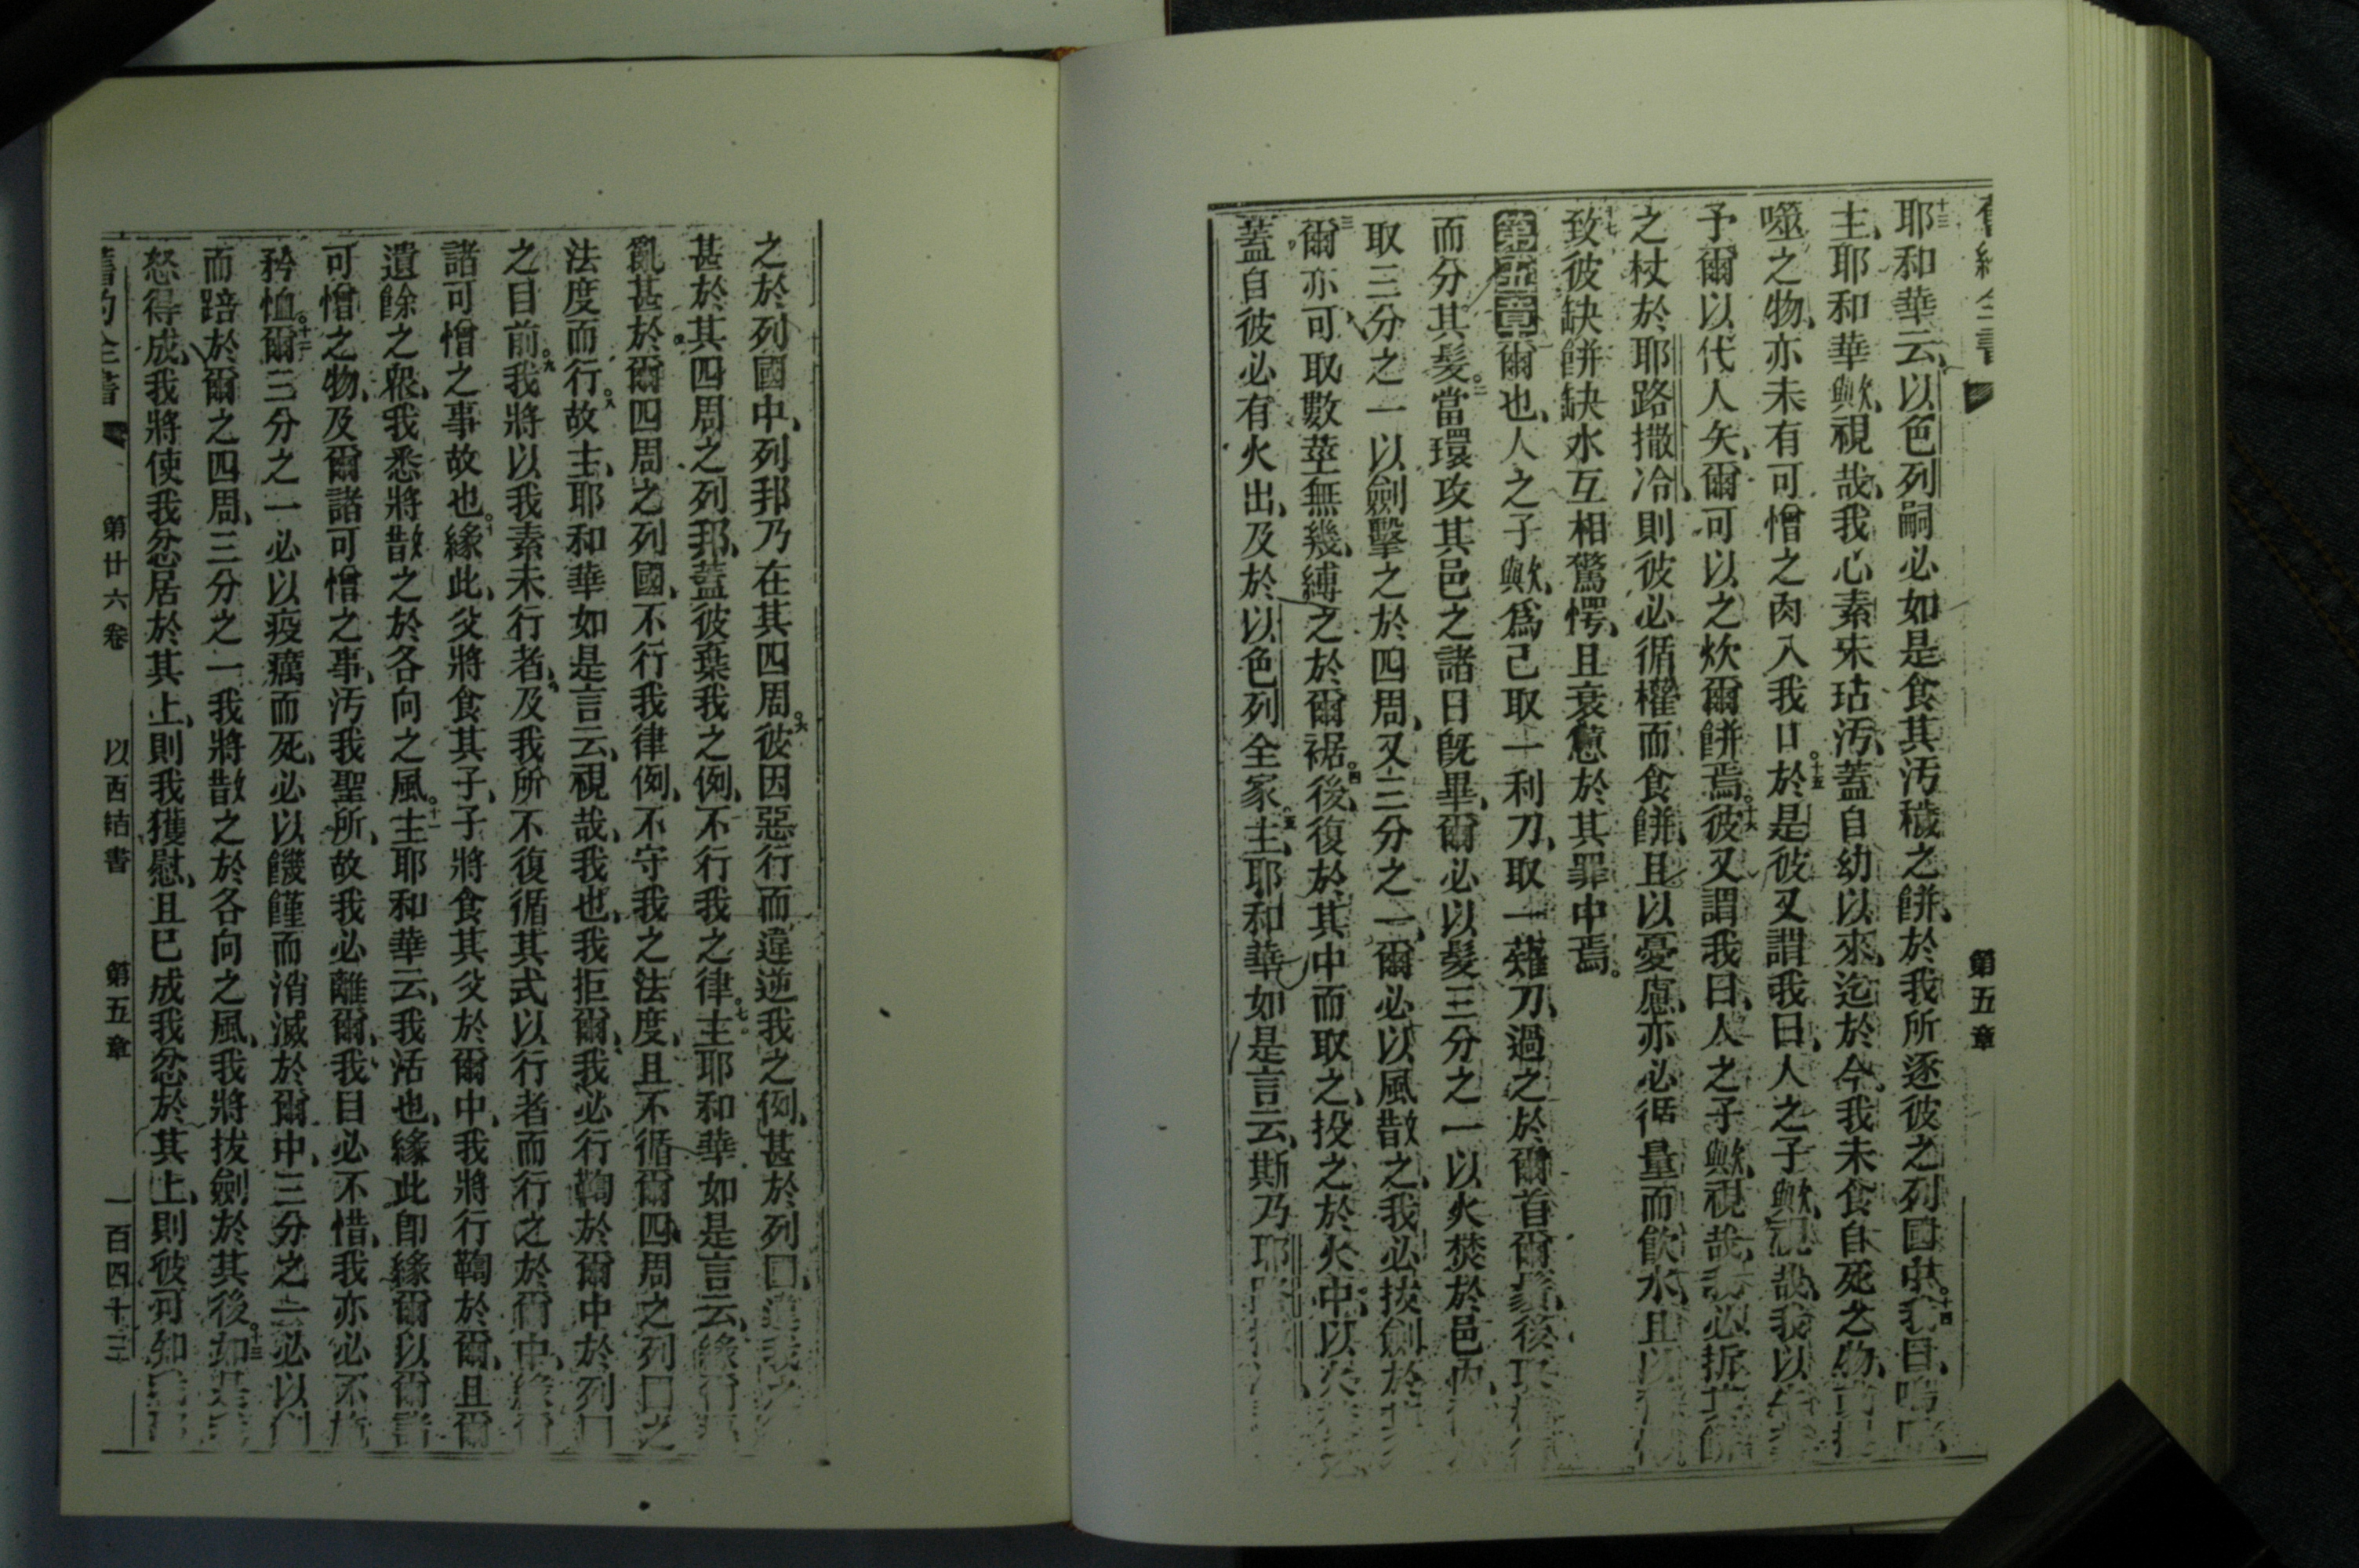 第五章
耶和華云、以色列嗣必如是食其汚穢之餅、於我所逐彼之列國中。十四我曰、嗚呼、
主、耶和華歟、視哉、我心素未玷汚、蓋自幼以來、迄於今、我未食自死之物、
噬之物、亦未有可憎之肉入我口。十五於是彼又謂我曰、人之子歟、視哉、我以牛
予爾以代人矢、爾可以之炊爾餅焉。十六彼又謂我曰、人之子歟、視哉、我必折其
之杖於耶路撒冷、則彼必循權而食餅、且以憂慮、亦必循量而飲水、且以
十七致彼缺餅缺水互相驚愕、且衰憊於其罪中焉。
第五章爾也、人之子歟、爲己取一利刀、取一薙刀、過之於爾首爾鬚、後取
而分其髮。二當環攻其邑之諸日旣畢、爾必以髮三分之一以火焚於邑內、
取三分之一以劍擊之於四周、又三分之一、爾必以風散之、我必拔劍於
三爾亦可取數莖無幾、縛之於爾裾。四後、復於其中而取之、投之於火中、以火
蓋自彼必有火出、及於以色列全家。五主、耶和華如是言云、斯乃耶路撒冷、
之於列國中、列邦乃在其四周。六彼因惡行而違逆我之例、甚於列國、違我之
甚於其四周之列邦、蓋彼棄我之例、不行我之律。七主耶和華如是言云、緣爾
亂甚於爾四周之列國、不行我律例、不守我之法度、且不循爾四周之列國之
法度而行。八故主、耶和華如是言云、視哉、我也、我拒爾、我必行鞫於爾中於列國
之目前。九我將以我素未行者、及我所不復循其式以行者而行之於爾中、緣爾
諸可憎之事故也。十緣此、父將食其子、子將食其父於爾中、我將行鞫於爾、且爾
遺餘之衆、我悉將散之於各向之風。十一主耶和華云、我活也、緣此卽緣爾以爾諸
可憎之物、及爾諸可憎之事、汚我聖所、故我必離爾、我目必不惜、我亦必不施
矜恤。十二爾三分之一必以疫癘而死、必以饑饉而消滅於爾中、三分之一必以
而踣於爾之四周、三分之一我將散之於各向之風、我將拔劍於其後。十三如是
怒得成、我將使我忿居於其上、則我獲慰、且已成我忿於其上、則彼可知
舊約全書　第廿六卷　以西結書　第五章　一百四十三